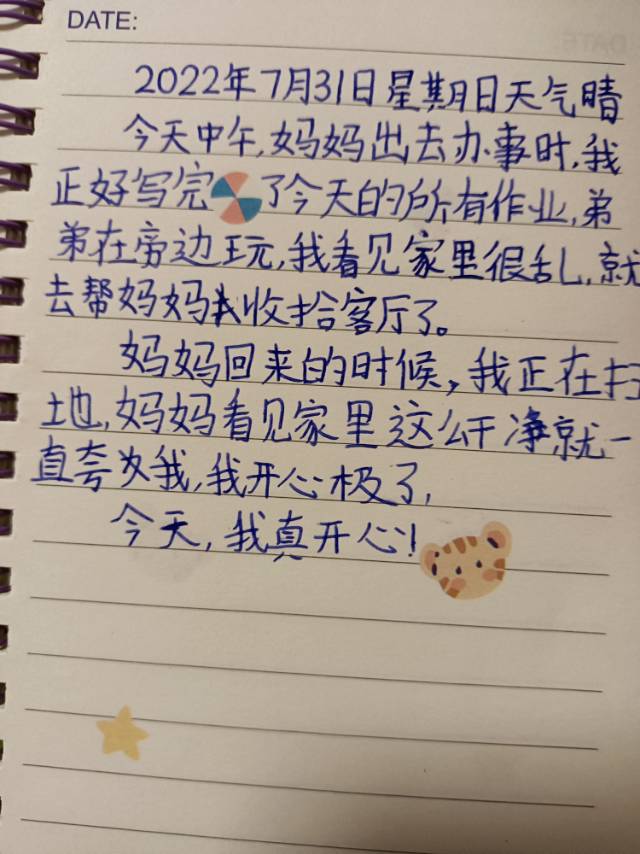 DATE:
2022年7月31日星期日天气晴
今天中午,妈妈出去办事时,我
正好写完了今天的所有作业,弟
弟在旁边玩,我看见家里很乱,就
去帮妈妈收拾客厅了。
妈妈回来的时候,我正在扫
地,妈妈看见家里这么干净就一
直夸我,我开心极了,
今天,我真开心!